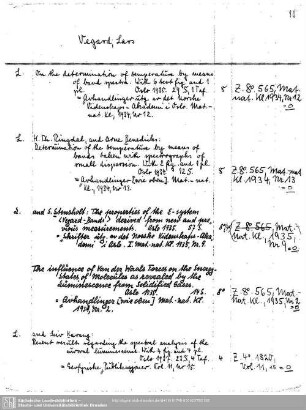 18
Vegard, Lars
L. On the determination of temperature by means
of band spectra. With 6 text fig. and 1
pl. Oslo 1935. 29 S., 1 Taf.
= Avhandlinger utg. av det Norske
Videnskaps-Akademi i Oslo. Mat.-
nat. Kl. 1934, Nr 12.
8° Z. 8°. 565, Mat.
nat. Kl. 1934, Nr 12
=0
L. H. Th. Ringdal, and Arne Benedicks:
Determination of the temperature by means of
bands taken with spectrographs of
small dispersion. With 2 fig. and 1 pl.
Oslo 1934. 12 S.
= Avhandlinger [wie oben] Mat.-nat.
Kl., 1934, Nr 13.
8° Z. 8°. 565, Mat.-nat.
Kl. 1934, Nr. 13
=0
L. and S. Stensholt: The properties of the E-system
(Vegard-Bands) derived from new and pre-
vious measurements. Oslo 1935. 57 S.
= Skrifter utg. av det Norske Videnskaps-Aka-
demi i Oslo. I. Mat.-nat. Kl. 1935, Nr 9.
Z. 8°. 565, Mat.-
Nat. Kl., 1935,
Nr. 9 =0
The influence of Van der Waals Forces on the Energy
States of Molecules as revealed by the
luminescence from Solidified Gases.
Oslo 1935. 14 S.
= Avhandlinger [wie oben] Mat.-nat. Kl.
8° Z. 8°. 565, Mat.-
Nat. Kl., 1935, Nr 2
=0
L. and Leiv Harang:
Recent results regarding the spectral analysis of the
auroral luminescence. With 4 fig. and 4 pl.
Oslo 1937. 23 S., 4 Taf.
= Geofysiske Publikasjoner. Vol. 11, Nr 15.
4 Z. 4° 1820,
Vol. 11, 15 =0